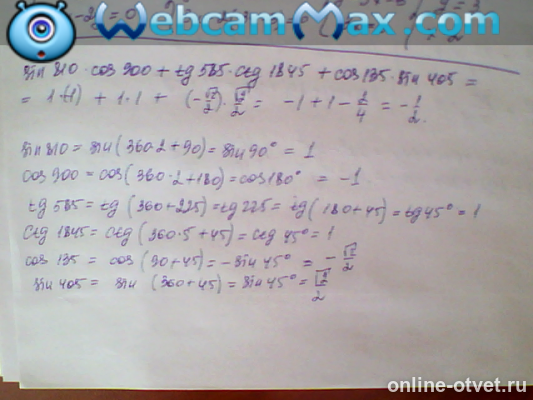 WebcamMax.com
sin 810 · cos 900 + tg 585 · ctg 1845 + cos 135 · sin 405 =
= 1·(-1) + 1·1 + (-√2/2) · √2/2 = -1 + 1 - 2/4 = -1/2.
sin 810 = sin (360·2+90) = sin 90° = 1
cos 900 = cos (360·2+180) = cos 180° = -1.
tg 585 = tg (360+225) = tg 225 = tg (180+45) = tg 45° = 1
ctg 1845 = ctg (360·5+45) = ctg 45° = 1
cos 135 = cos (90+45) = -sin 45° = -√2/2
sin 405 = sin (360+45) = sin 45° = √2/2
online-otvet.ru